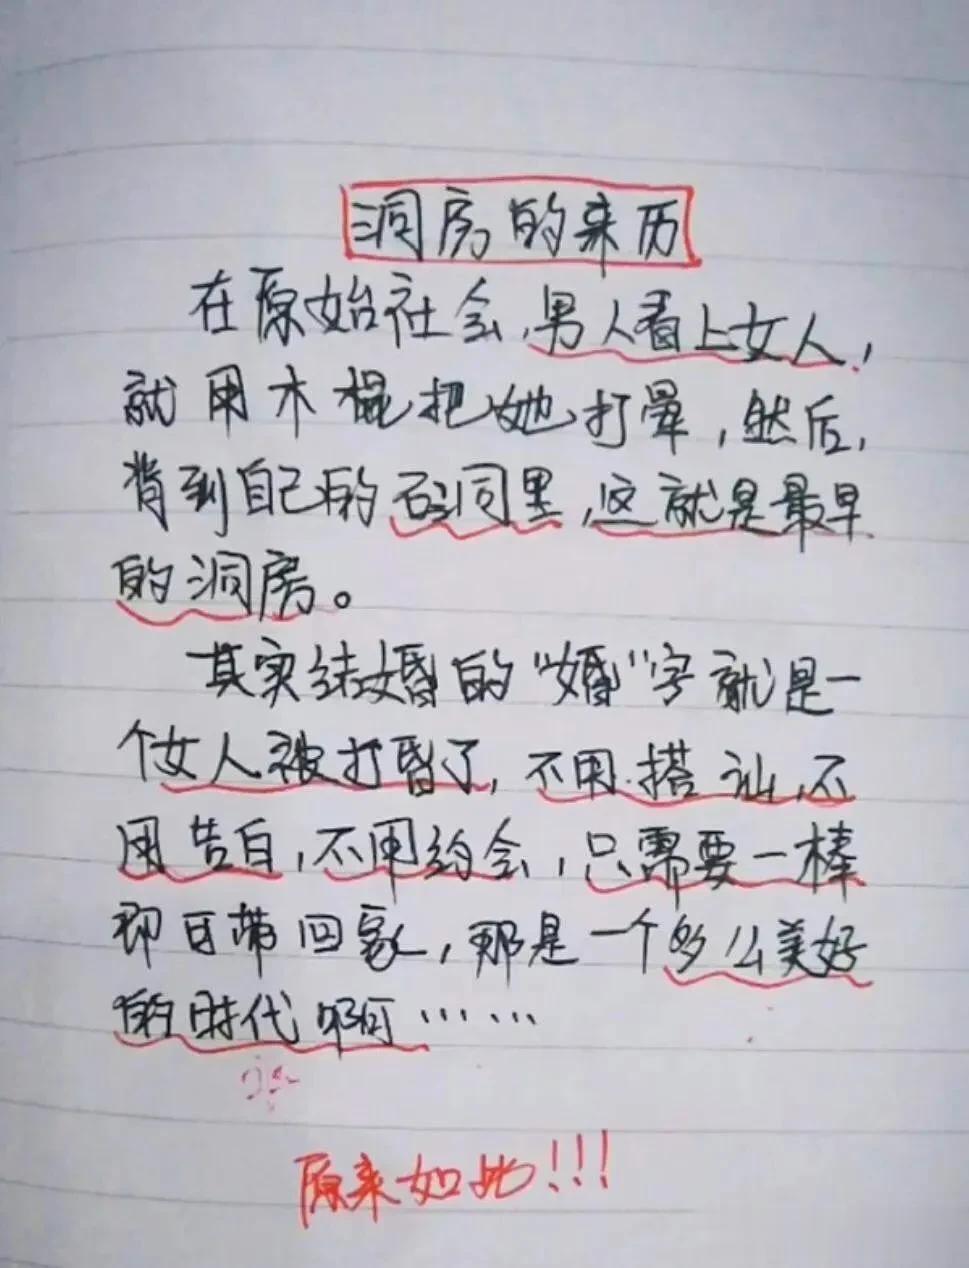 洞房的来历
在原始社会,男人看上女人,
就用木棍把她打晕,然后,
背到自己的石洞里,这就是最早
的洞房。
其实结婚的"婚"字就是一
个女人被打昏了,不用搭讪,不
用告白,不用约会,只需要一棒
即日带回家,那是一个多么美好
的时代啊……
原来如此!!!